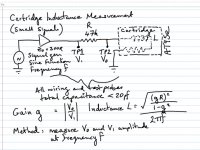 Cartridge Inductance Measurement
(Small Signals)
R
47k
Cartridge
Zo = zero
Signal gain
Sine function
Frequency F
TP1
V1
TP2
Vo
All wiring and test probes
total capacitance < 20pf
Gain g = |Vo/V1| Inductance L = √((gR)²/1-g²) / 2πF
Method: measure Vo and V1 amplitude
at frequency F